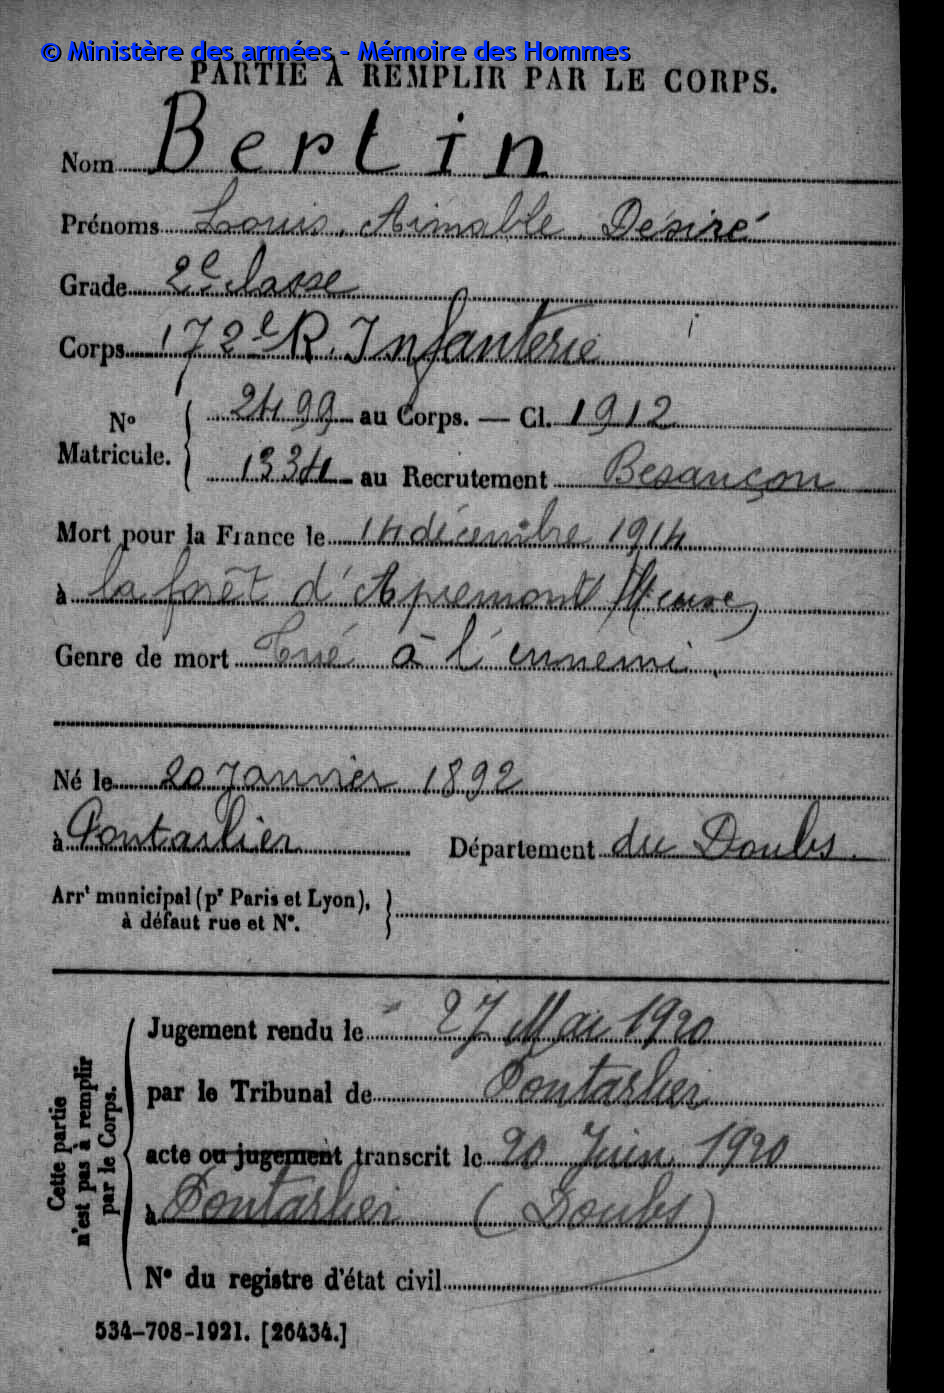 © Ministère des armées - Mémoire des Hommes
PARTIE À REMPLIR PAR LE CORPS.
Nom Bertin
Prénoms Louis, Aimable, Désiré
Grade 2e classe
Corps 172e R. Infanterie
No Matricule. { 2499 au Corps. — Cl. 1912
1334 au Recrutement Besançon
Mort pour la France le 14 décembre 1914
à la forêt d'Apremont (Meuse)
Genre de mort Tué à l'ennemi
Né le 20 Janvier 1892
à Pontarlier Département du Doubs.
Arrt municipal (pr Paris et Lyon),
à défaut rue et No.
Cette partie n'est pas à remplir par le Corps.
Jugement rendu le 27 Mai 1920
par le Tribunal de Pontarlier
acte ou jugement transcrit le 20 Juin 1920
à Pontarlier (Doubs)
No du registre d'état civil
534-708-1921. [26434.]